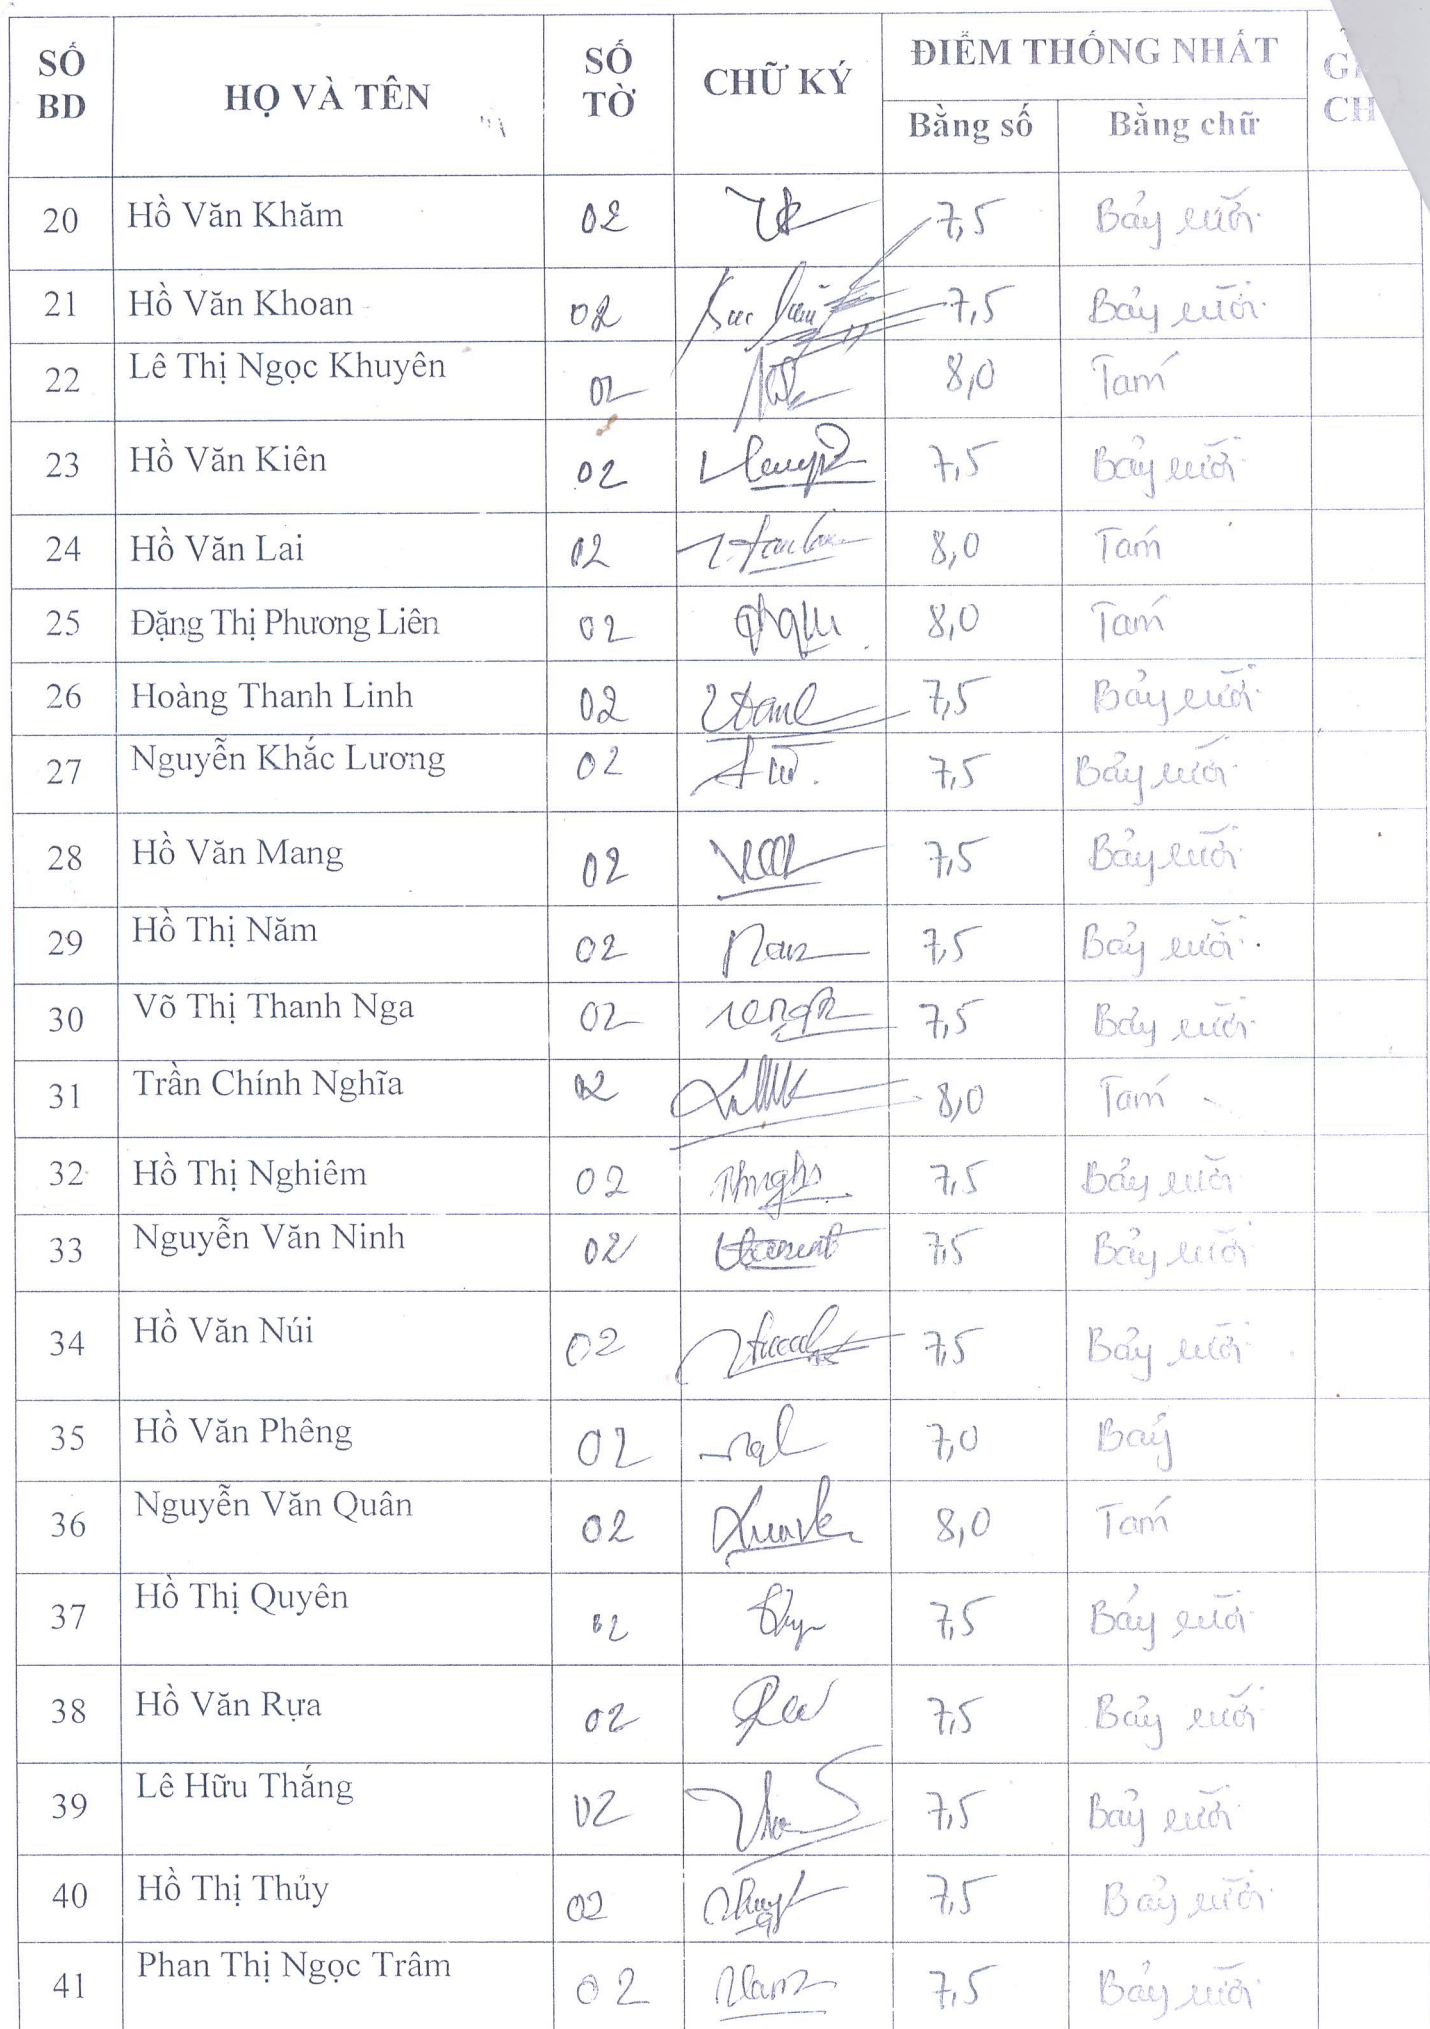 SỐ BD HỌ VÀ TÊN SỐ TỜ CHỮ KÝ ĐIỂM THỐNG NHẤT
Bằng số Bằng chữ
20 Hồ Văn Khăm 02 7,5 Bảy rưỡi
21 Hồ Văn Khoan 02 7,5 Bảy rưỡi
22 Lê Thị Ngọc Khuyên 02 8,0 Tám
23 Hồ Văn Kiên 02 7,5 Bảy rưỡi
24 Hồ Văn Lai 02 8,0 Tám
25 Đặng Thị Phương Liên 02 8,0 Tám
26 Hoàng Thanh Linh 02 7,5 Bảy rưỡi
27 Nguyễn Khắc Lương 02 7,5 Bảy rưỡi
28 Hồ Văn Mang 02 7,5 Bảy rưỡi
29 Hồ Thị Năm 02 7,5 Bảy rưỡi
30 Võ Thị Thanh Nga 02 7,5 Bảy rưỡi
31 Trần Chính Nghĩa 02 8,0 Tám
32 Hồ Thị Nghiêm 02 7,5 Bảy rưỡi
33 Nguyễn Văn Ninh 02 7,5 Bảy rưỡi
34 Hồ Văn Núi 02 7,5 Bảy rưỡi
35 Hồ Văn Phêng 02 7,0 Bảy
36 Nguyễn Văn Quân 02 8,0 Tám
37 Hồ Thị Quyên 02 7,5 Bảy rưỡi
38 Hồ Văn Rựa 02 7,5 Bảy rưỡi
39 Lê Hữu Thắng 02 7,5 Bảy rưỡi
40 Hồ Thị Thủy 02 7,5 Bảy rưỡi
41 Phan Thị Ngọc Trâm 02 7,5 Bảy rưỡi